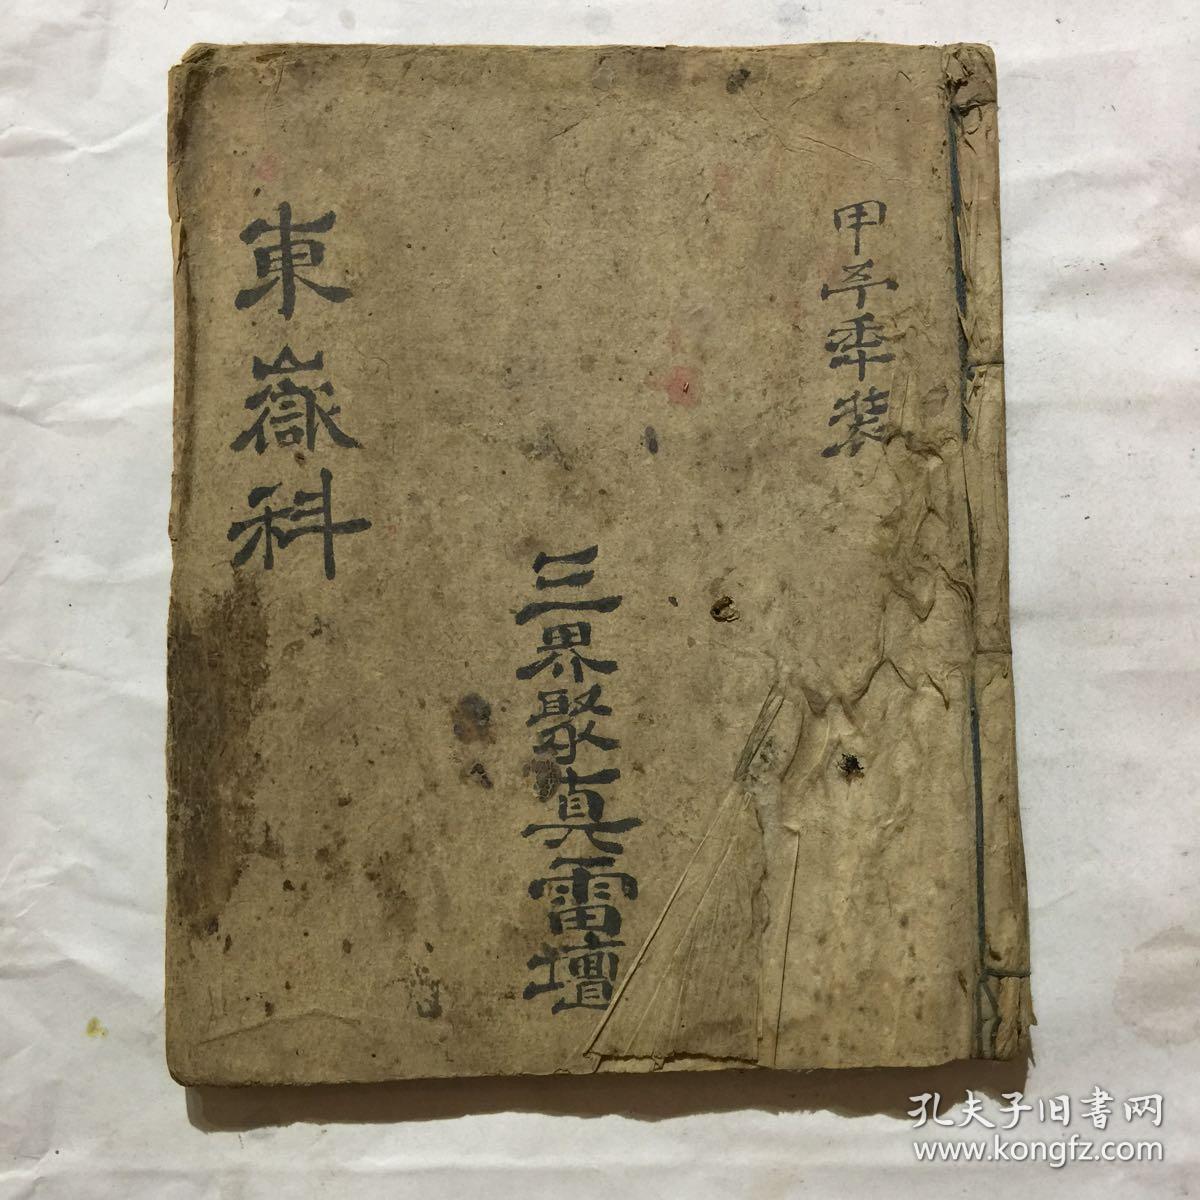 甲子年裝
三界聚真雷壇
東嶽科
孔夫子旧書网
www.kongfz.com